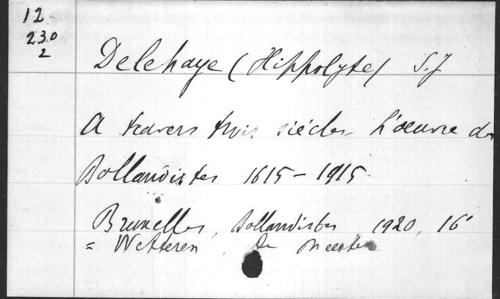 12
230
2
Delehaye (Hippolyte) SJ
A travers trois siècles l'oeuvre des
Bollandistes 1615-1915.
Bruxelles, Bollandistes 1920, 16°
= Wetteren, De Meester